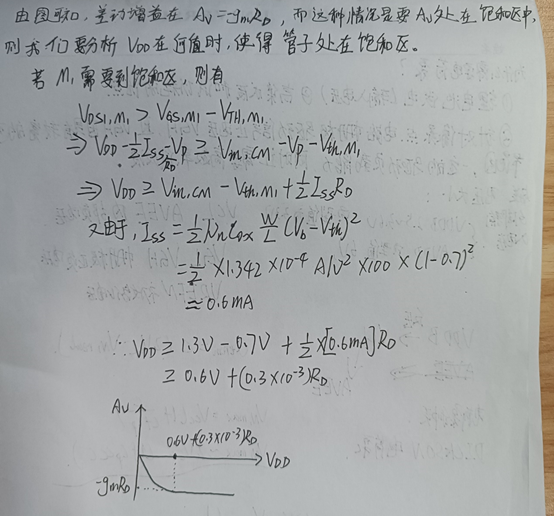 由图可知,差动增益在 Av=-gmRD,而这种情况是要Av处在饱和区中,
则我们要分析 VDD在何值时,使得管子处在饱和区。
若 M1 需要到饱和区,则有
VDS1,M1 > VGS,M1 - VTH,M1
⇒ VDD-½ISS RD-VP ≥ Vin,CM - VP - Vth,M1
⇒ VDD ≥ Vin,CM - Vth,M1 + ½ISSRD
又由于,ISS = ½ μnCox W/L (Vb-Vth)²
= ½ ×1.342×10⁻⁴ A/V² ×100 × (1-0.7)²
≈ 0.6mA
∴ VDD ≥ 1.3V - 0.7V + ½×[0.6mA]RD
≥ 0.6V + (0.3×10⁻³)RD
Av
0.6V+(0.3×10⁻³)RD
VDD
-gmRD